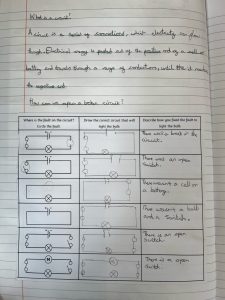 What is a circuit?
A circuit is a series of connections, which electricity can flow
through. Electrical energy is pushed out of the positive end of a cell or
battery and travels through a range of conductors, until it reaches
the negative end.
How can we repair a broken circuit?
Where is the fault on the circuit? Circle the fault
Draw the correct circuit that will light the bulb
Describe how you fixed the fault to light the bulb
There was a break in the circuit.
There was an open switch.
There wasn't a cell or a battery.
There wasn't a bulb and a switch.
There is an open switch.
There is a open switch.